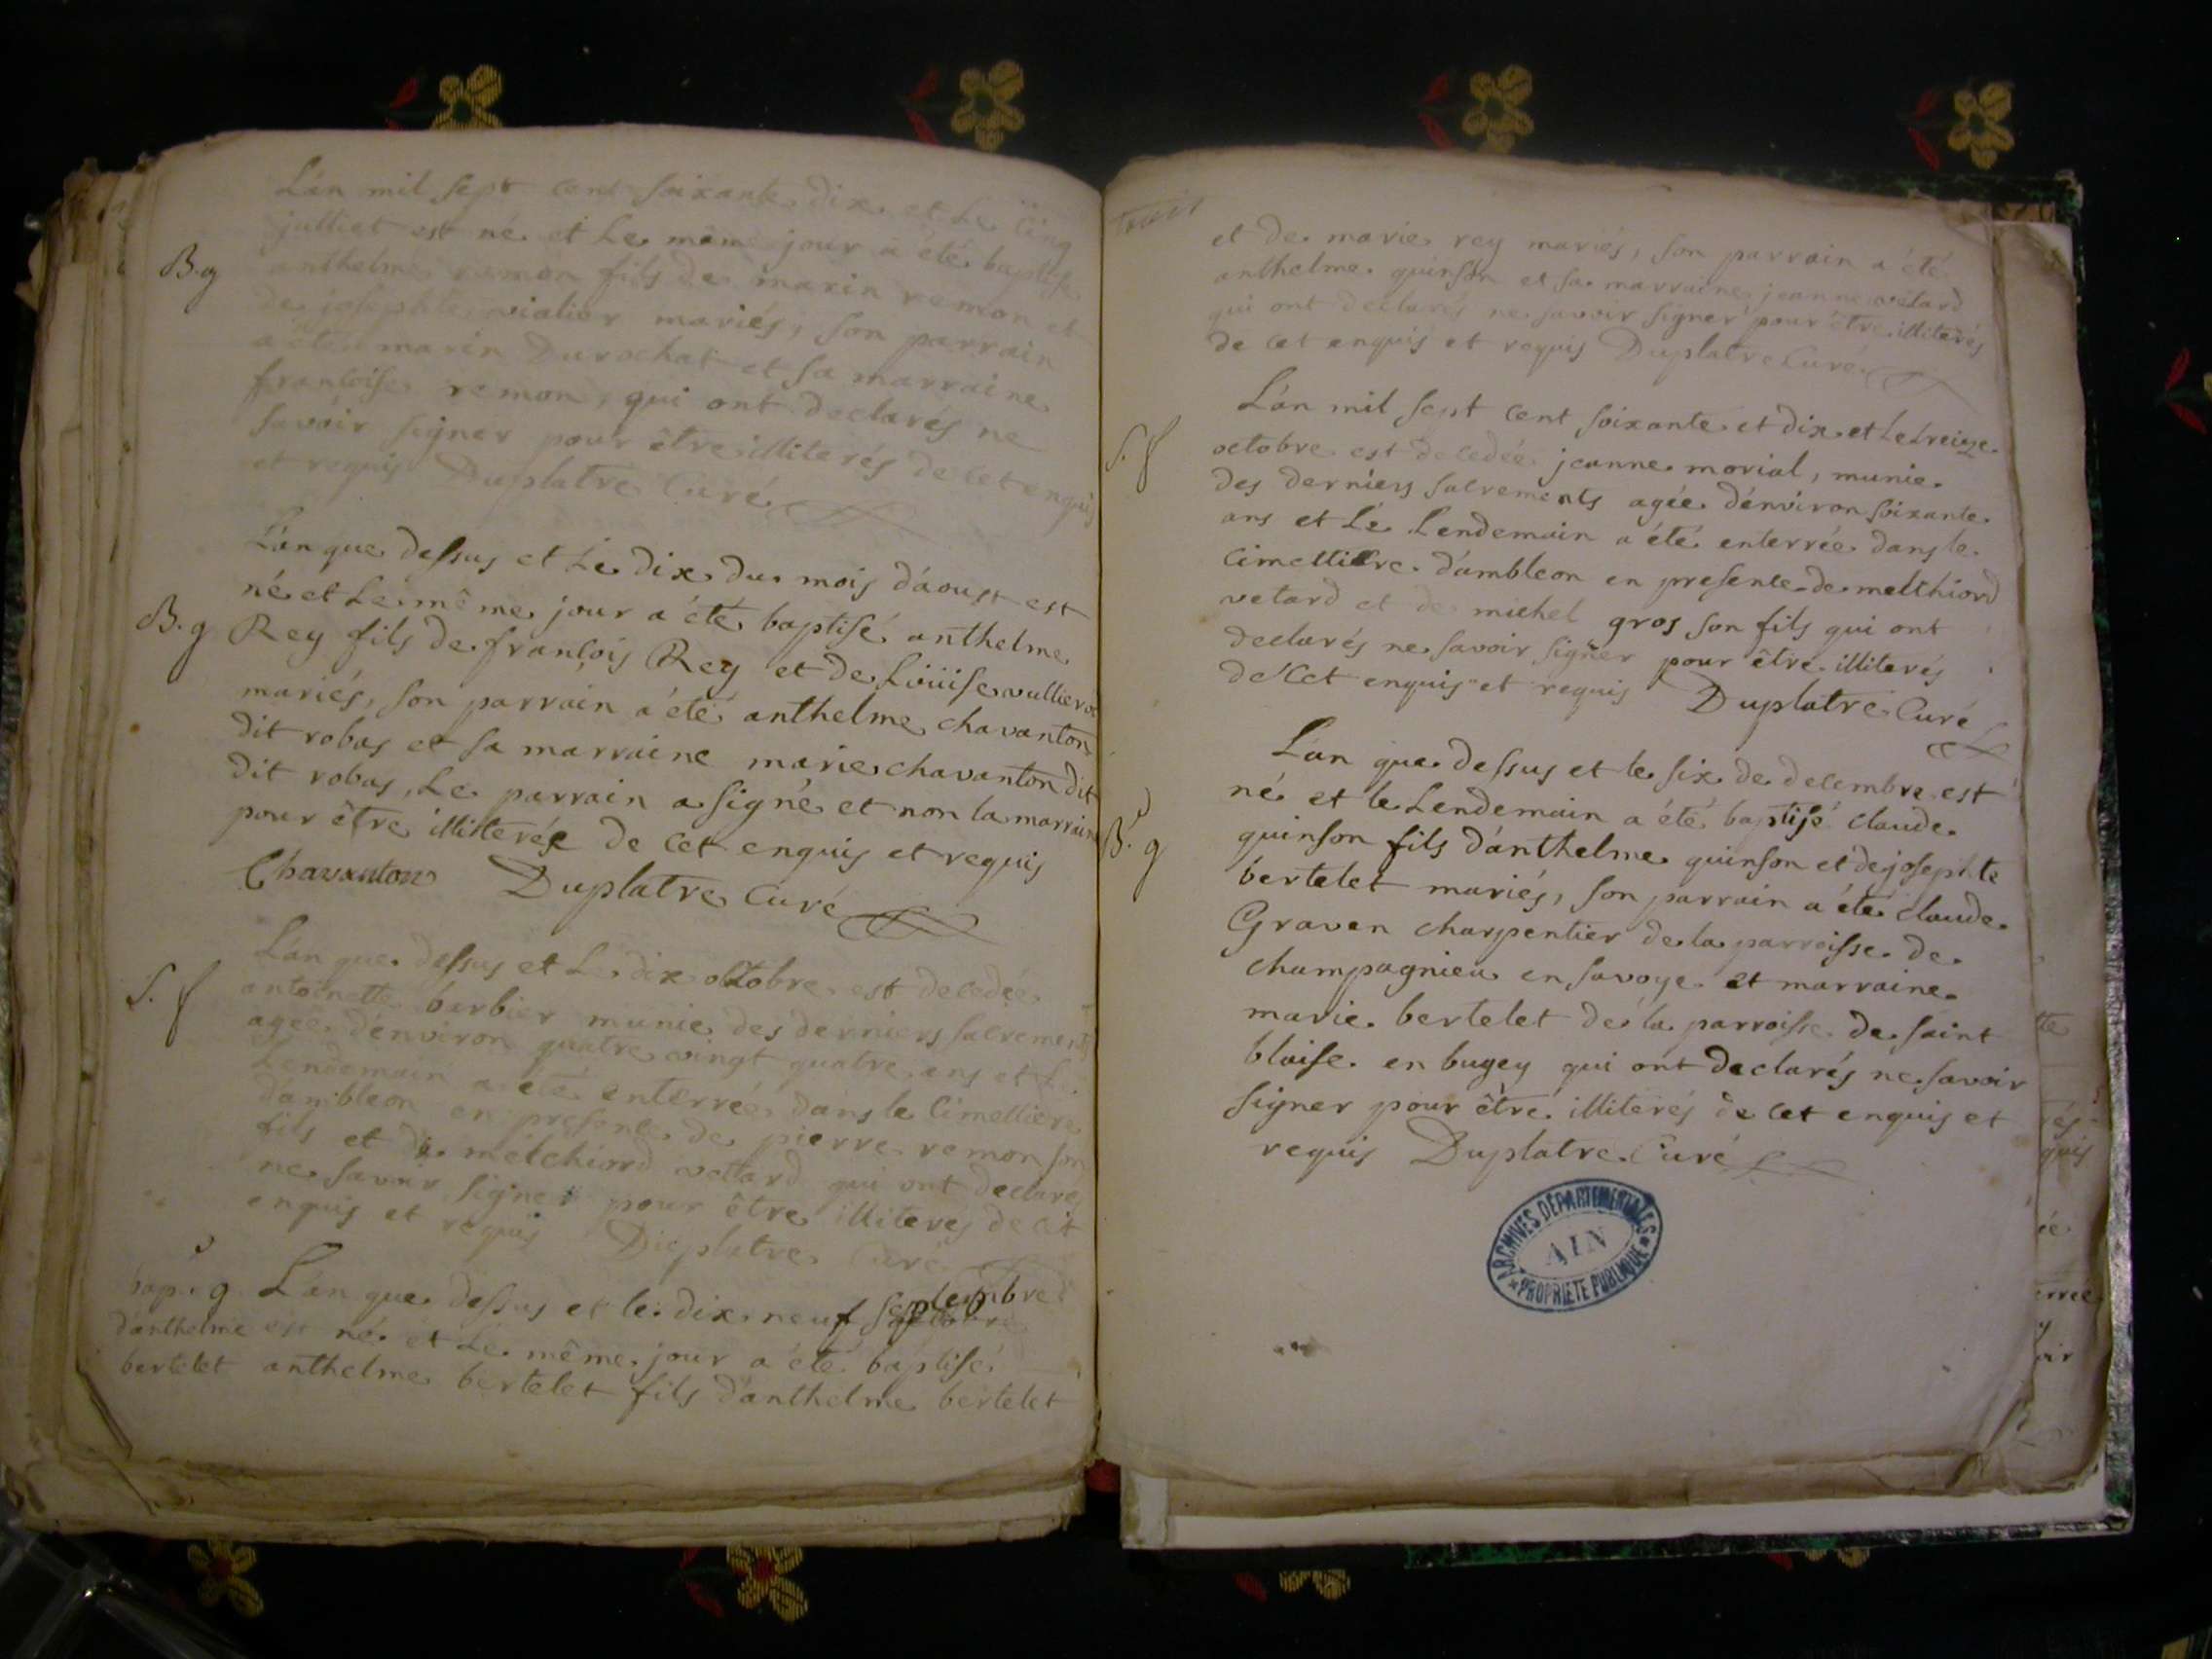 L'an mil sept cent soixante dix et le cinq
julliet est né et le même jour a été baptisé
B.g
anthelme remon fils de marin remon et
de josephte vialier mariés, son parrain
a été marin Durochat et sa marraine
françoise remon, qui ont declarés ne
savoir signer pour être illiterés de cet enquis
et requis Duplatre Curé
L'an que dessus et le dix du mois d'aoust est
né et le même jour a été baptisé anthelme
B.g Rey fils de françois Rey et de Loüise vullierod
mariés, son parrain a été anthelme chavanton
dit robas et sa marraine marie chavanton dit
dit robas, le parrain a signé et non la marraine
pour être illiterée de cet enquis et requis
Chavanton Duplatre Curé
L'an que dessus et le dix octobre est decedée
S. f
antoinette barbier munie des derniers sacrements
agée d'environ quatre vingt quatre ans et le
Lendemain a été enterrée dans le cimettiere
d'ambleon en presence de pierre remon son
fils et de melchiord vettard qui ont declarés
ne savoir signer pour être illiterés de cet
enquis et requis Duplatre Curé
bap. g L'an que dessus et le dix neuf septembre
d'anthelme est né et le même jour a été baptisé
bertelet anthelme bertelet fils d'anthelme bertelet
et de marie rey mariés, son parrain a été
anthelme quinson et sa marraine jeanne vetard
qui ont declarés ne savoir signer pour être illiterés
de cet enquis et requis Duplatre Curé
L'an mil sept cent soixante et dix et le treize
S. f
octobre est decedée jeanne morial, munie
des derniers sacrements agée d'environ soixante
ans et le Lendemain a été enterrée dans le
cimettiere d'ambleon en presence de melchiord
vetard et de michel gros son fils qui ont
declarés ne savoir signer pour être illiterés
de cet enquis et requis Duplatre Curé
L'an que dessus et le six de decembre est
né et le Lendemain a été baptisé claude
B. g
quinson fils d'anthelme quinson et de josephte
bertelet mariés, son parrain a été claude
Graven charpentier de la parroisse de
champagnieu en savoye et marraine
marie bertelet de la parroisse de saint
blaise en bugey qui ont declarés ne savoir
signer pour être illiterés de cet enquis et
requis Duplatre Curé
ARCHIVES DÉPARTEMENTALES
AIN
PROPRIÉTÉ PUBLIQUE